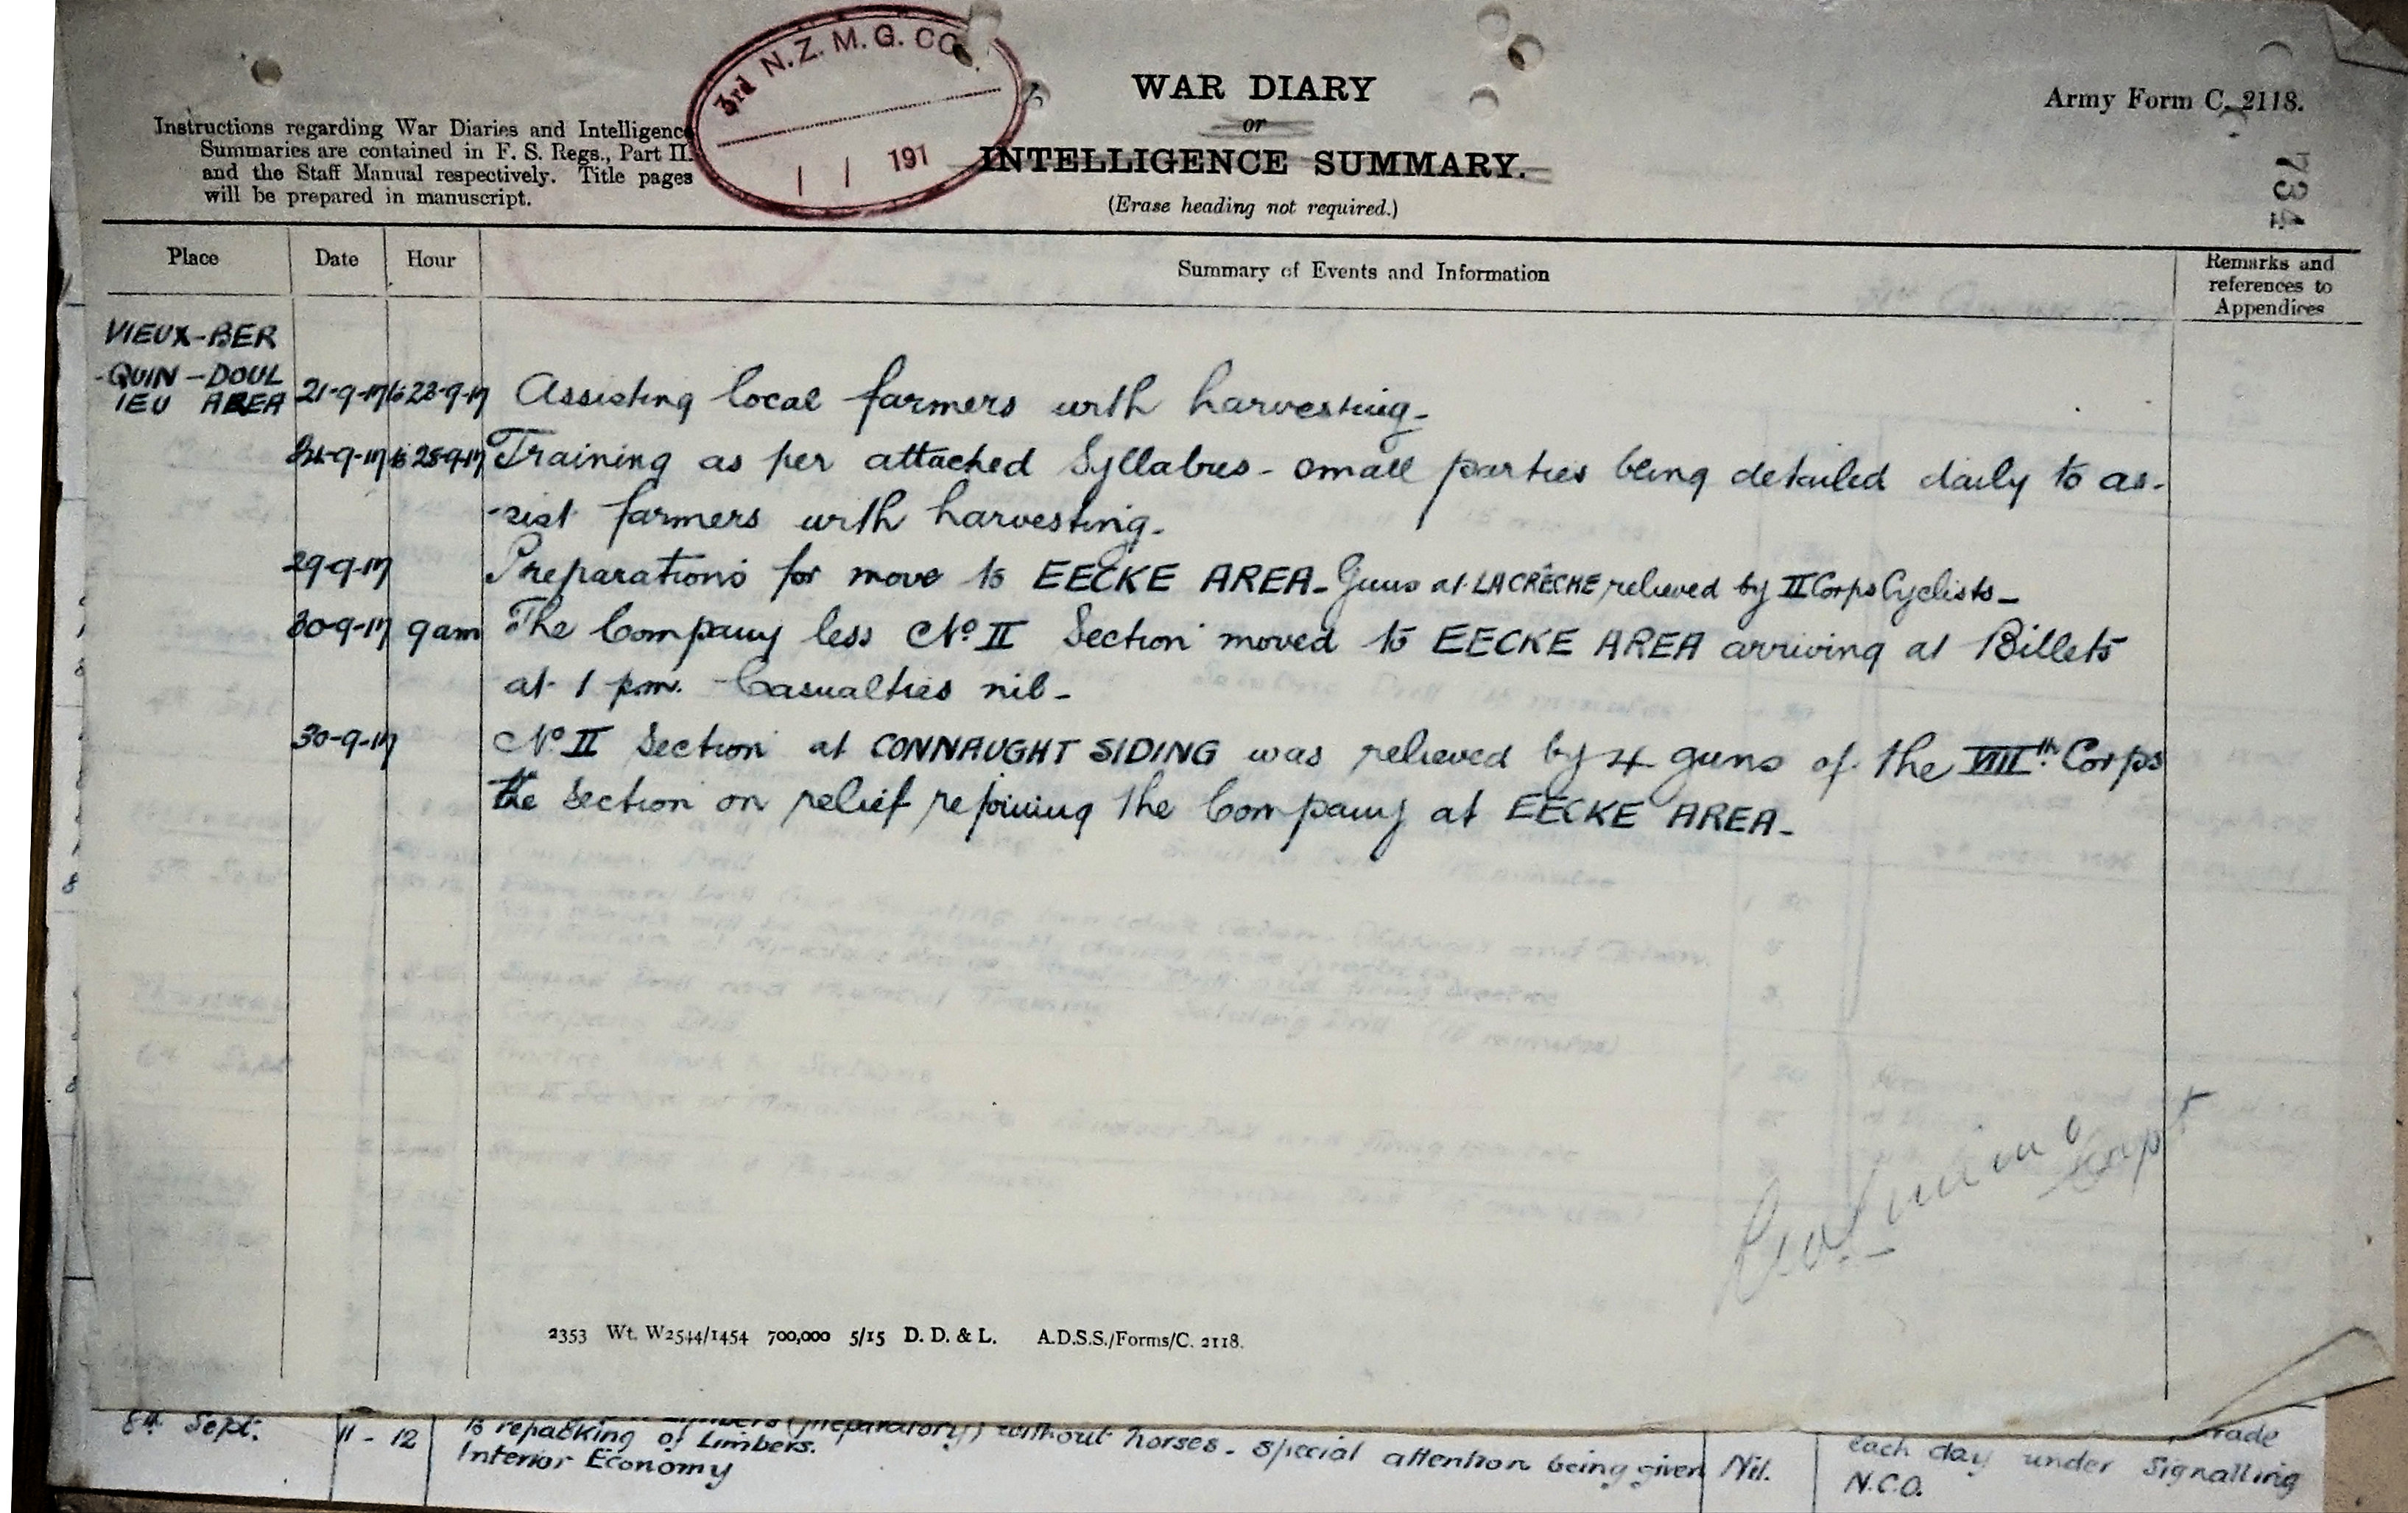 3rd N.Z. M.G. CO.
/ / 191
Instructions regarding War Diaries and Intelligence
Summaries are contained in F. S. Regs., Part II.
and the Staff Manual respectively. Title pages
will be prepared in manuscript.
WAR DIARY
or
INTELLIGENCE SUMMARY.
(Erase heading not required.)
Army Form C. 2118.
734
Place Date Hour Summary of Events and Information Remarks and
references to
Appendices
VIEUX-BER
-QUIN-DOUL
IEU AREA 21-9-17 to 23-9-17 Assisting local farmers with harvesting-
24-9-17 to 28-9-17 Training as per attached Syllabus - small parties being detailed daily to as-
-sist farmers with harvesting.
29-9-17 Preparations for move to EECKE AREA- Guns at LA CRÊCHE relieved by II Corps Cyclists-
30-9-17 9am The Company less No II Section moved to EECKE AREA arriving at Billets
at 1 pm. Casualties nil-
30-9-17 No II Section at CONNAUGHT SIDING was relieved by 4 guns of the VIIIth Corps
the Section on relief rejoining the Company at EECKE AREA-
Capt
2353 Wt. W2544/1454 700,000 5/15 D. D. & L. A.D.S.S./Forms/C. 2118.
8th Sept. 11 - 12 (preparatory) without horses - special attention being given Nil.
to repacking of Limbers.
Interior Economy
each day under Signalling
N.C.O.